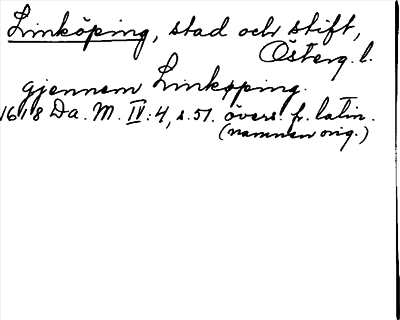 Linköping, stad och stift,
Österg. l.
gjennem Linkøping.
1618 Da. M. IV:4, s. 51. övers. fr. latin.
(namnen orig.)